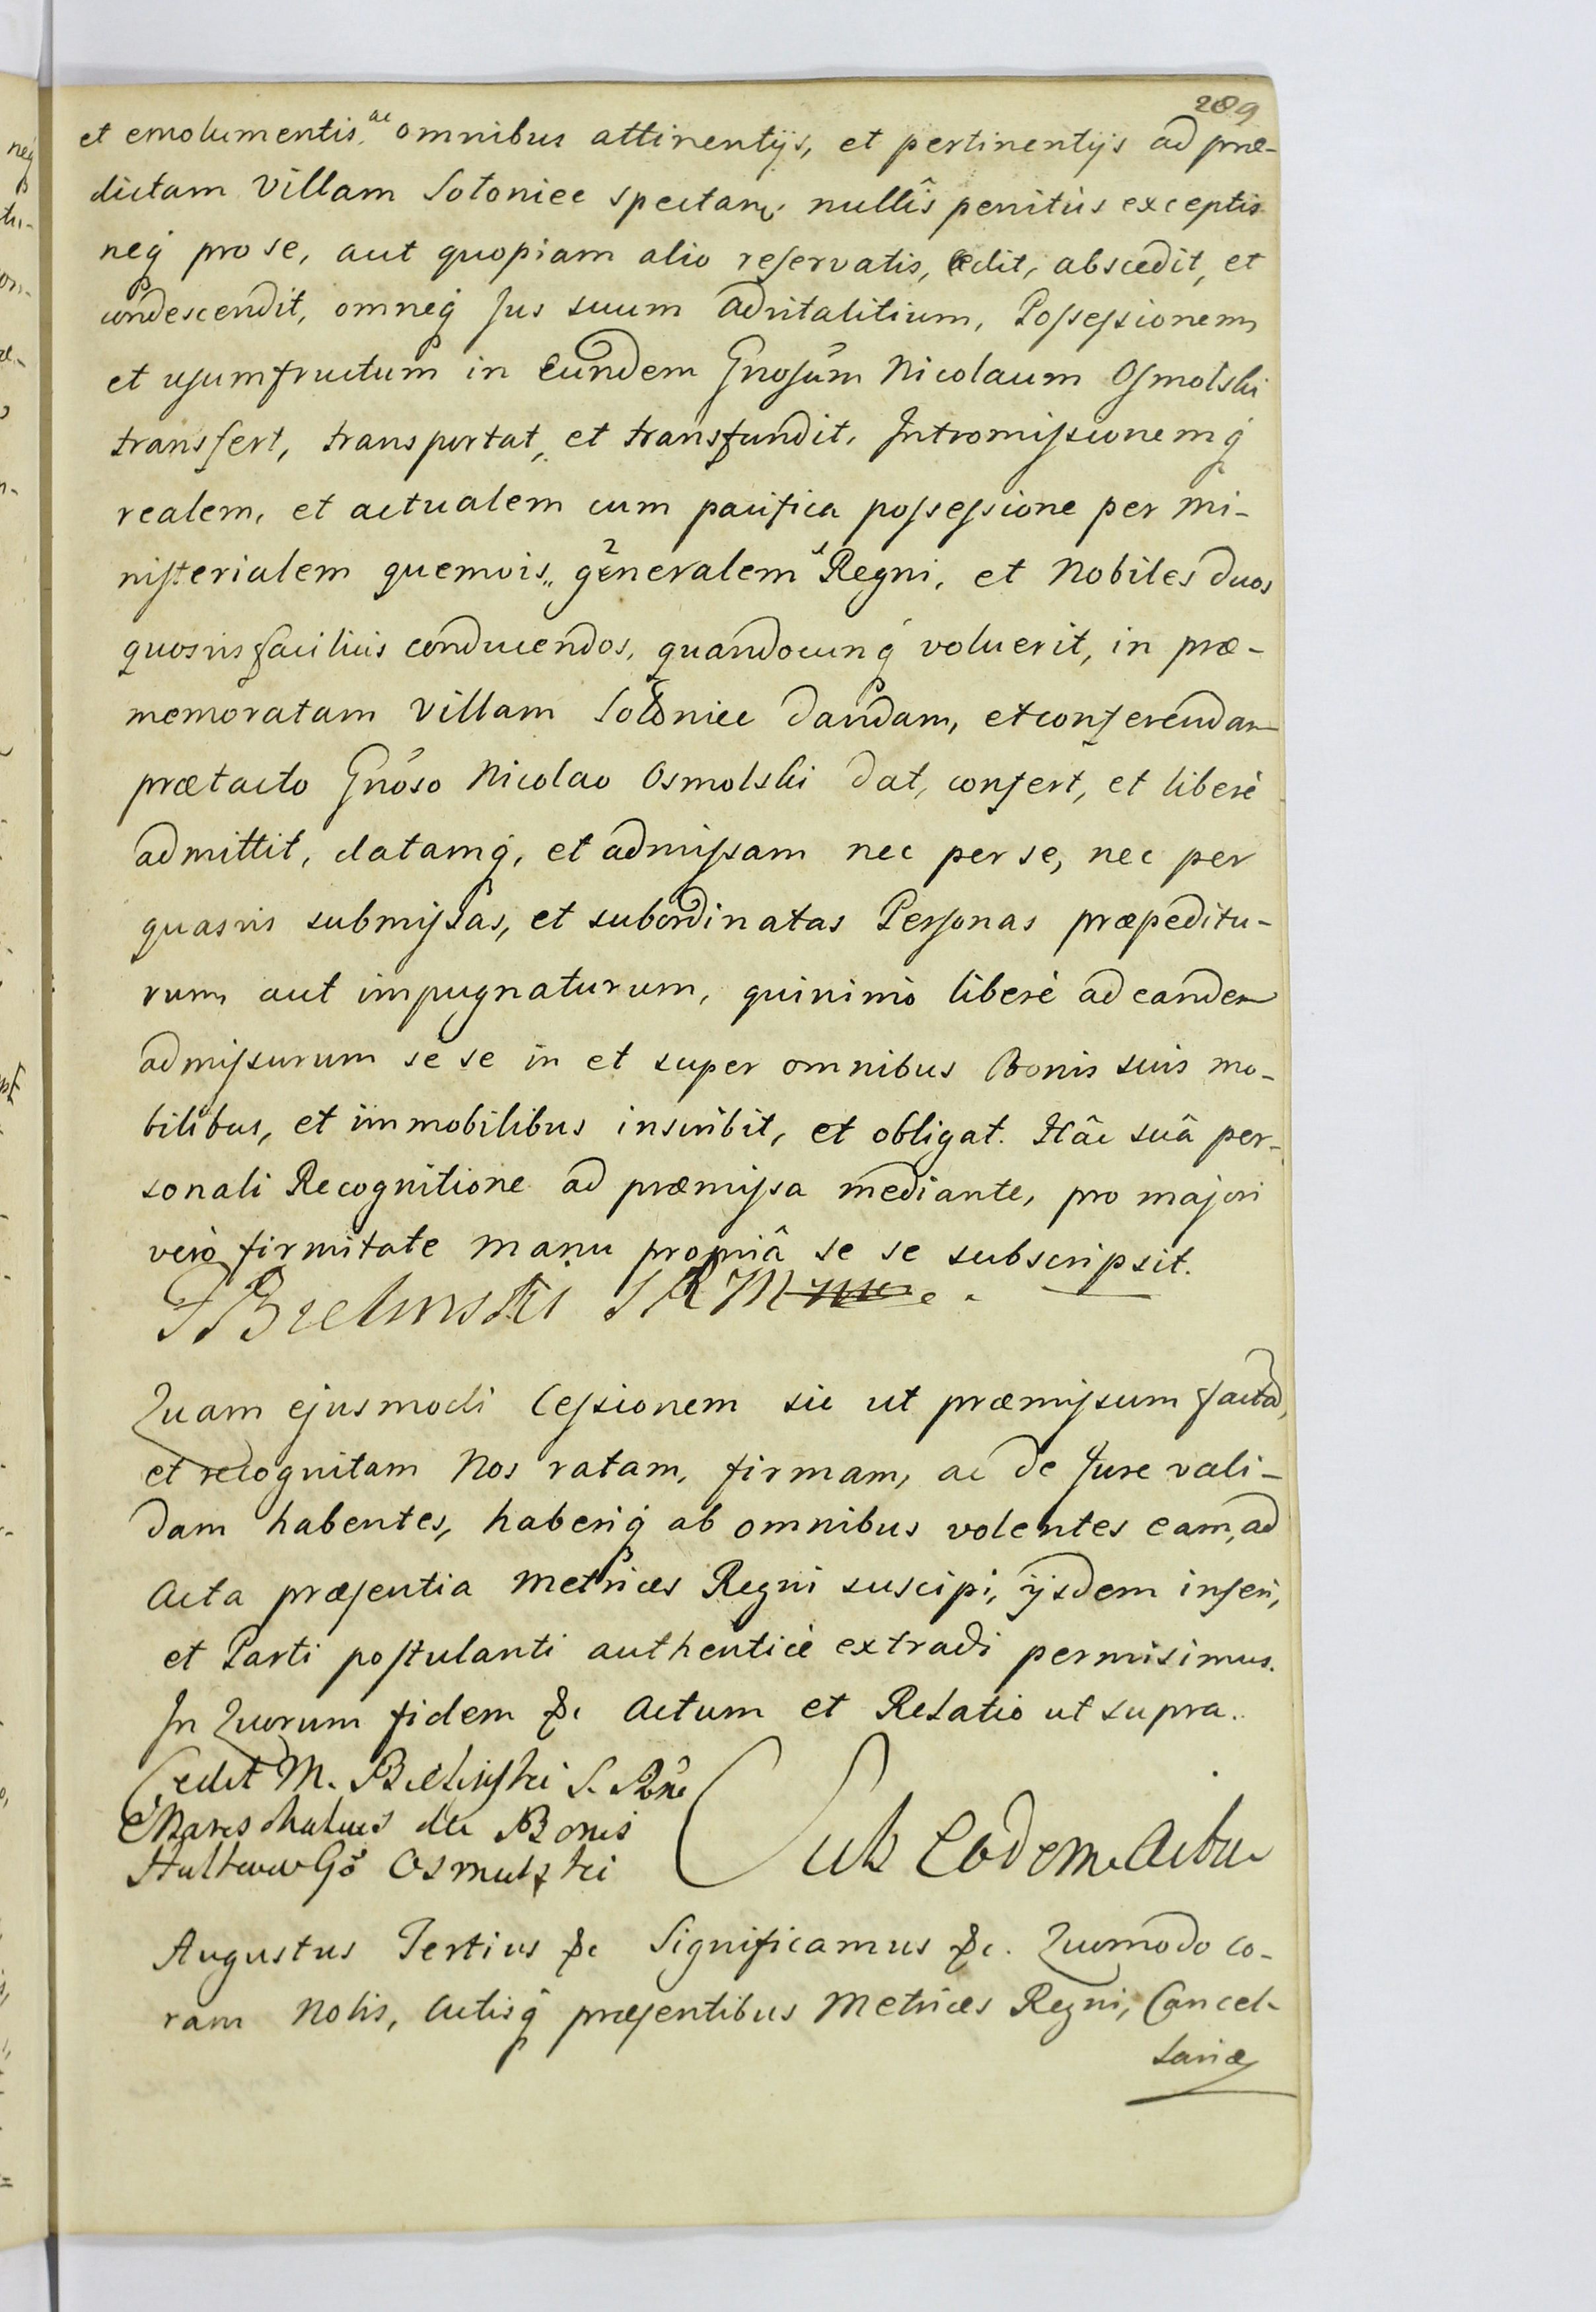 289
et emolumentis ac omnibus attinentijs, et pertinentijs ad præ-
dictam Villam Sotoniec spectan: nullis penitùs exceptis
neq̀ pro se, aut quopiam alio reservatis, cedit, abscedit, et
condescendit, omneq̀ Jus suum advitalitium, Possessionem,
et usumfructum in Eundem Gnosum Nicolaum Osmolski
transfert, transportat, et transfundit. Intromissionemq̀
realem, et actualem cum pacifica possessione per Mi-
nisterialem quemvis generalem Regni, et Nobiles duos
quosvis faciliùs conducendos, quandocunq̀ voluerit, in præ-
memoratam Villam Sotoniec dandam, et conferendam
prætacto Gnoso Nicolao Osmolski dat, confert, et liberè
admittit, datamq̀, et admissam nec per se, nec per
quasvis submissas, et subordinatas Personas præpeditu-
rum, aut impugnaturum, quinimò liberè ad eandem
admissurum se se in et super omnibus Bonis suis mo-
bilibus, et immobilibus inscribit, et obligat. Hâc suâ per-
sonali Recognitione ad præmissa mediante, pro majori
verò firmitate manu propriâ se se subscripsit.
F Bielinski
Quam ejusmodi Cessionem sic ut præmissum factã,
et recognitam Nos ratam, firmam, ac de Jure vali-
dam habentes, haberiq̀ ab omnibus volentes eam, ad
Acta præsentia Metrices Regni suscipi, ijsdem inseri,
et Parti postulanti authenticè extradi permisimus.
In Quorum fidem &c Actum et Relatio ut supra.
Cedit M. Bielinski S.
Mareschalcus de Bonis
Gõ Osmulski
Sub Eodem Actu
Augustus Tertius &c Significamus &c. Quomodo co-
ram Nobis, Actisq̀ præsentibus Metrices Regni, Cancel-
lariæ